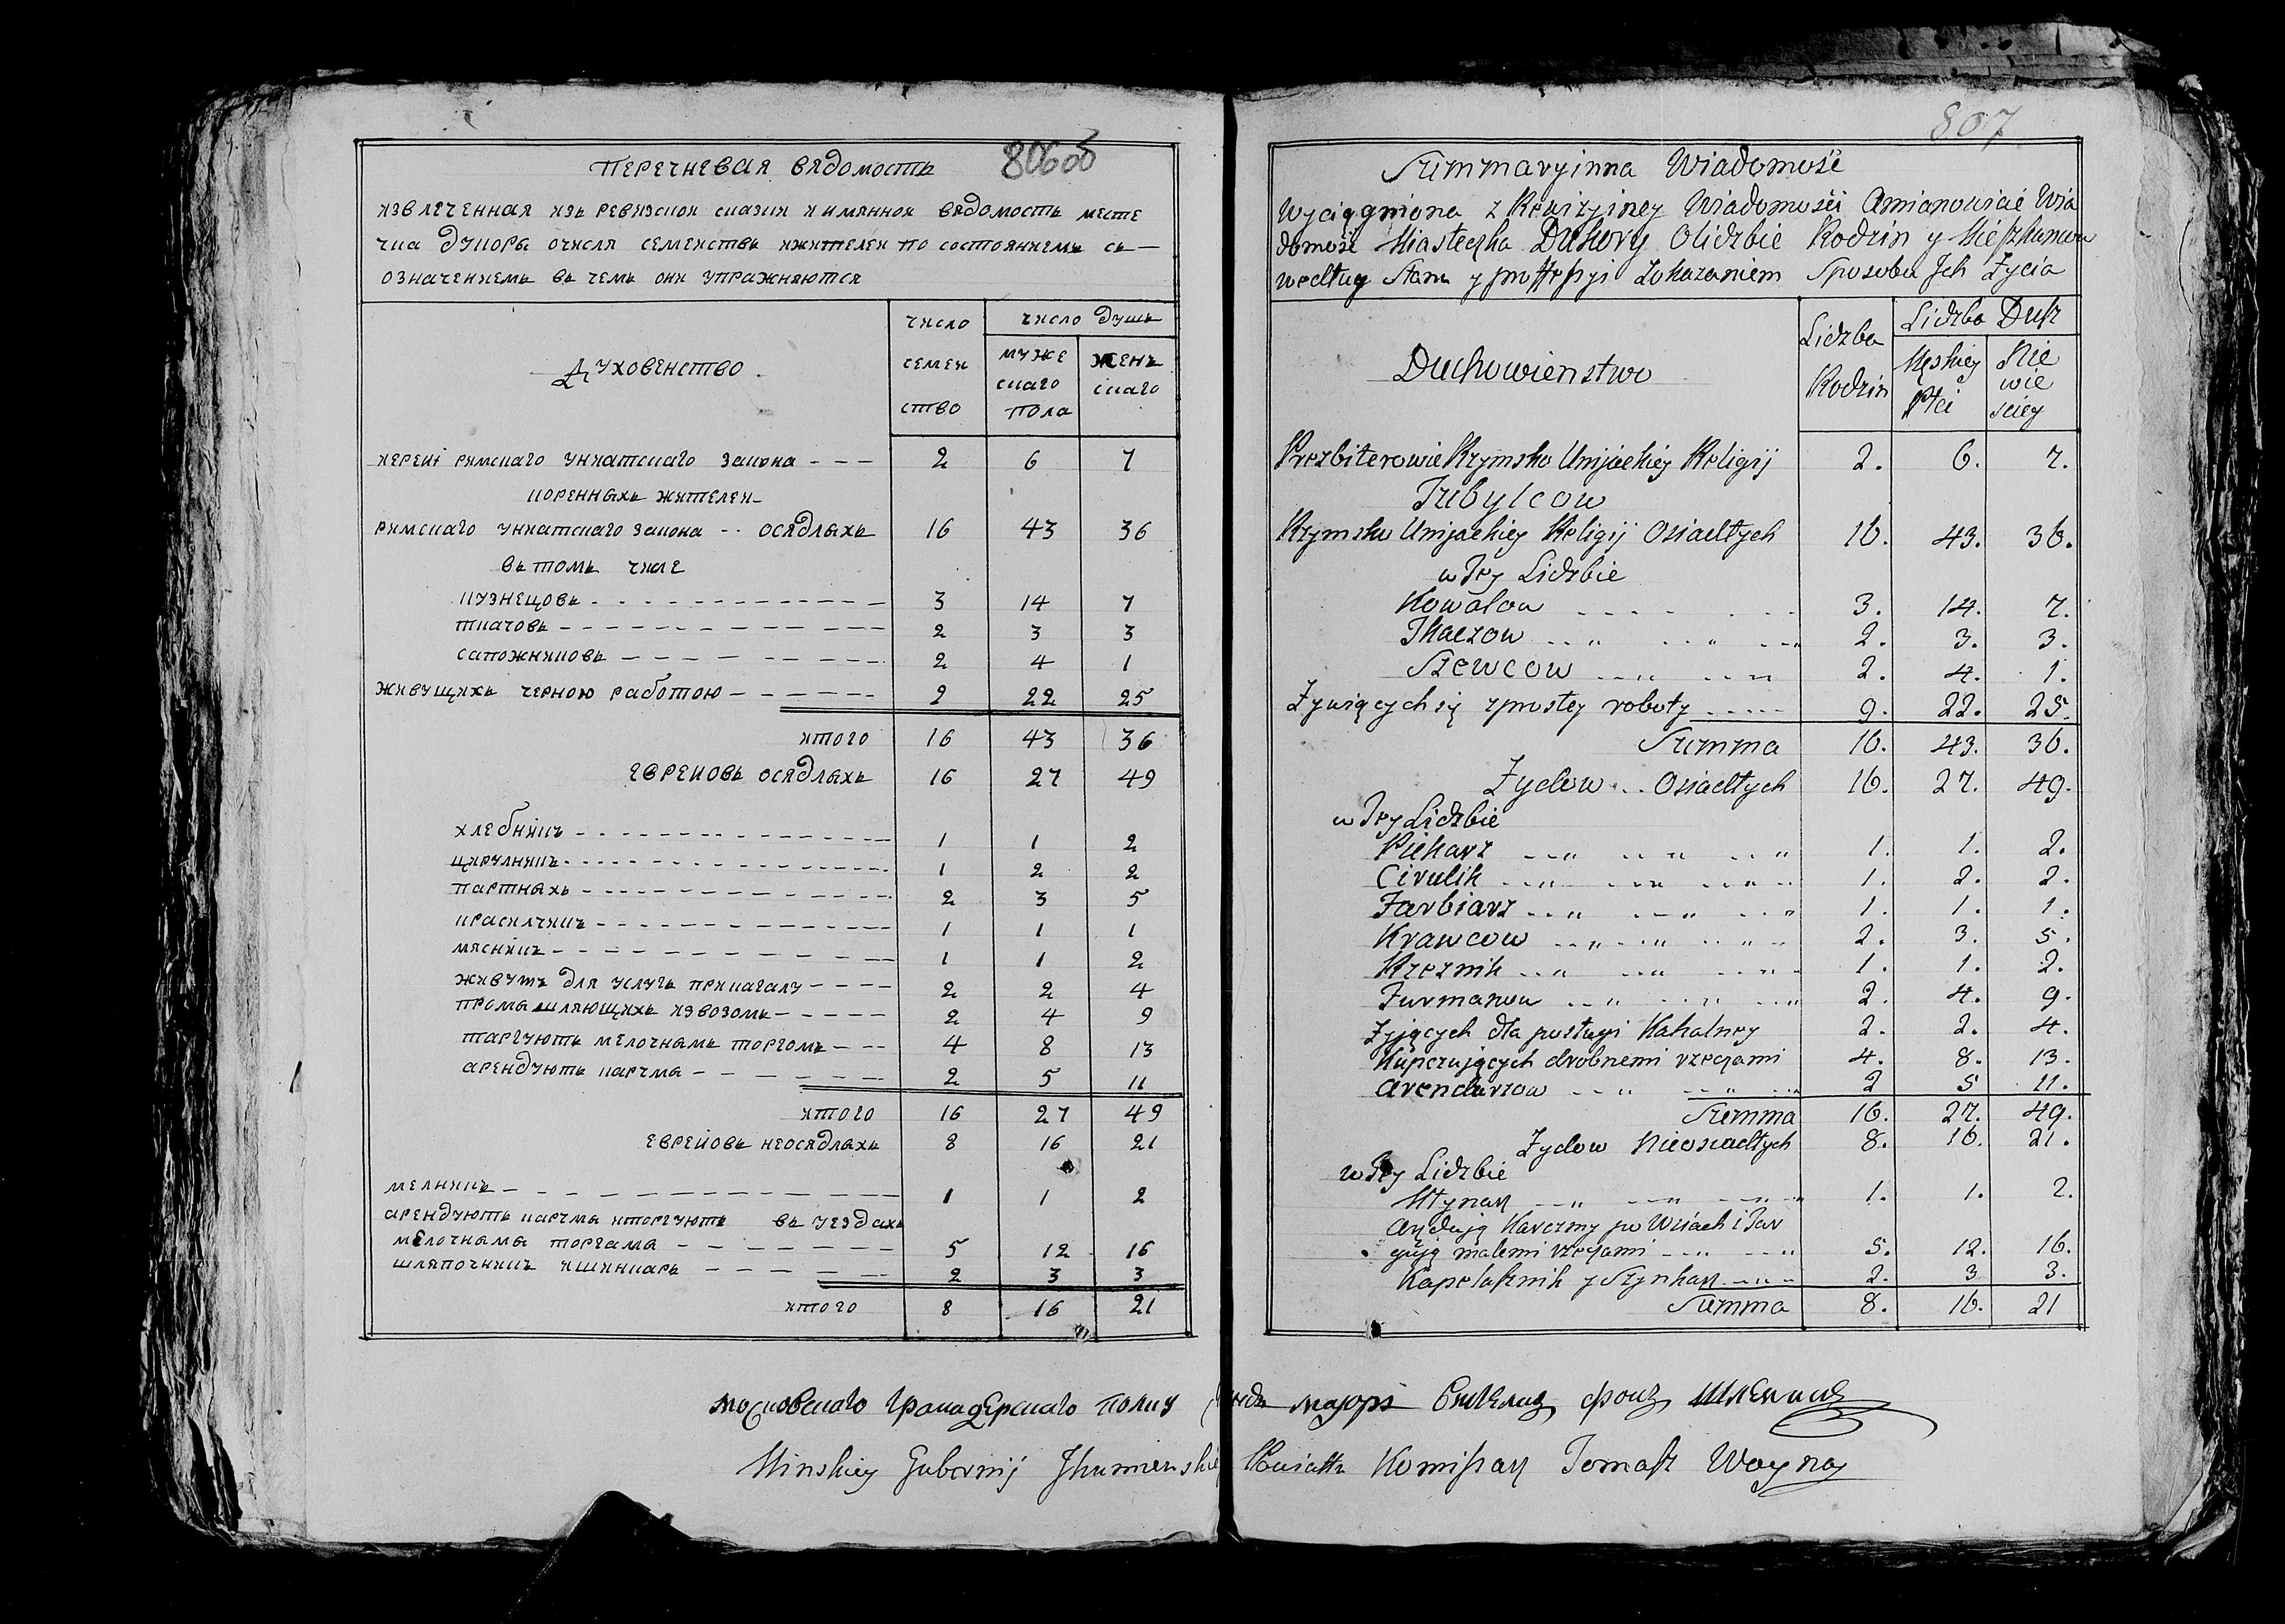 806об
ПЕРЕЧНЕВАЯ ВЯДОМОСТЬ
ИЗВЛЕЧЕННАЯ ИЗЬ РЕВИЗСКОЙ СКАЗКИ И ИМЯННОЙ ВЯДОМОСТЬ МЕСТЕ
ЧКА ДУКОРЫ ОЧИСЛЯ СЕМЕЙСТВЬ ИЖИТЕЛЕЙ ПО СОСТОЯНИЕМЬ СЬ—
ОЗНАЧЕНИЕМЬ ВЬ ЧЕМЬ ОНИ УПРАЖНЯЮТСЯ
ДУХОВЕНСТВО
ЧИСЛО СЕМЕЙ СТВО
ЧИСЛО ДУШЬ
МУЖЕ СКАГО ПОЛА
ЖЕНЪ СКАГО
ИЕРЕИ РИМСКАГО УНИАТСКАГО ЗАКОНА - - - 2 6 7
КОРЕННЫХЬ ЖИТЕЛЕЙ
РИМСКАГО УНИАТСКАГО ЗАКОНА - - ОСЯДЛЫХЬ 16 43 36
ВЬ ТОМЬ ЧИСЛЕ
КУЗНЕЦОВЬ 3 14 7
ТКАЧОВЬ 2 3 3
САПОЖНИКОВЬ 2 4 1
ЖИВУЩИХЬ ЧЕРНОЮ РАБОТОЮ 9 22 25
ИТОГО 16 43 36
ЕВРЕЙОВЬ ОСЯДЛЫХЬ 16 27 49
ХЛЕБНИКЪ 1 1 2
ЦИРУЛНИКЪ 1 2 2
ПАРТНЫХЬ 2 3 5
КРАСИЛЧИКЪ 1 1 1
МЯСНИКЪ 1 1 2
ЖИВУТЪ ДЛЯ УСЛУГЬ ПРИКАГАЛУ 2 2 4
ПРОМЫШЛЯЮЩИХЬ ИЗВОЗОМЬ 2 4 9
ТАРГУЮТЬ МЕЛОЧНЫМЬ ТОРГОМЬ 4 8 13
АРЕНДУЮТЬ КАРЧМЫ 2 5 11
ИТОГО 16 27 49
ЕВРЕЙОВЬ НЕОСЯДЛЫХЬ 8 16 21
МЕЛНИКЪ 1 1 2
АРЕНДУЮТЬ КАРЧМЫ ИТОРГУЮТЬ ВЬ УЕЗДАХЬ
МЕЛОЧНЫМЫ ТОРГАМЫ 5 12 16
ШЛЯПОЧНИКЪ ИШИНКАРЬ 2 3 3
ИТОГО 8 16 21
807
Summaryinna Wiadomość
Wyciągniona z Rewizyiney Wiadomości Amianowicie Wia
domość Miasteczka Dukory Olidzbie Rodzin y Mieszkancow
według Stanu y proffessyi Zokazaniem Sposobu Jch Życia
Duchowienstwo
Lidzba Rodzin
Lidzba Dusz
Męskiey Płci
Nie wie sciey
Prezbiterowie Rzymsko Unijackiey Religij 2. 6. 7.
Tubylcow
Rzymsko Unijackiey Religij Osiadłych 16. 43. 36.
w Tey Lidzbie
Kowalow 3. 14. 7.
Tkaczow 2. 3. 3.
Szewcow 2. 4. 1.
Żywiących się zprostey roboty 9. 22. 25.
Summa 16. 43. 36.
Żydow Osiadłych 16. 27. 49.
w Tey Lidzbie
Piekarz 1. 1. 2.
Cirulik 1. 2. 2.
Farbiarz 1. 1. 1.
Krawcow 2. 3. 5.
Rzeznik 1. 1. 2.
Furmanow 2. 4. 9.
Żyjących dla posługi Kahalney 2. 2. 4.
Kupczujących drobnemi rzeczami 4. 8. 13.
Arendarzow 2 5 11.
Summa 16. 27. 49.
Żydow Nieosiadłych 8. 16. 21.
w Tey Lidzbie
Młynarz 1. 1. 2.
Arędują Karczmy po Wsiach i Tar
gują małemi rzeczami 5. 12. 16.
Kapelusznik y Szynkarz 2. 3 3.
Summa 8. 16. 21
Московскаго Гранадерскаго полку маjоръ фонъ
Minskiey Gubernij Jhumenskie Powiattu Komissarz Tomasz Woyna